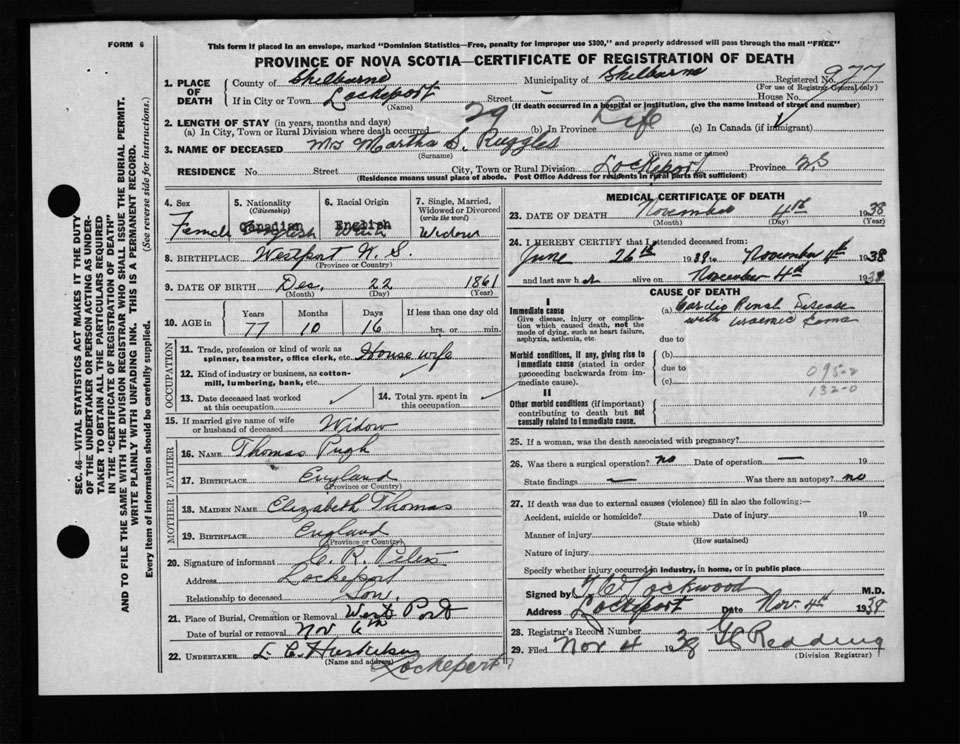 FORM 6
This form if placed in an envelope, marked "Dominion Statistics—Free, penalty for improper use $300," and properly addressed will pass through the mail "FREE"
PROVINCE OF NOVA SCOTIA—CERTIFICATE OF REGISTRATION OF DEATH
1. PLACE OF DEATH
County of Shelburne Municipality of Shelburne Registered No. 977
(For use of Registrar General only)
If in City or Town Lockeport Street — House No.
(Name) (If death occurred in a hospital or institution, give the name instead of street and number)
2. LENGTH OF STAY (in years, months and days)
(a) In City, Town or Rural Division where death occurred 29 (b) In Province Life (c) In Canada (if immigrant)
3. NAME OF DECEASED Mrs Martha S. Ruggles
(Surname) (Given name or names)
RESIDENCE No. Street City, Town or Rural Division Lockeport Province N.S
(Residence means usual place of abode. Post Office Address for residents in rural parts not sufficient)
4. Sex
Female
5. Nationality
(Citizenship)
Canadian
6. Racial Origin
English
7. Single, Married, Widowed or Divorced
(write the word)
Widow
8. BIRTHPLACE Westport N. S.
(Province or Country)
9. DATE OF BIRTH Dec. 22 1861
(Month) (Day) (Year)
10. AGE in Years Months Days If less than one day old
77 10 16 hrs. or min.
OCCUPATION
11. Trade, profession or kind of work as spinner, teamster, office clerk, etc. House wife
12. Kind of industry or business, as cotton-mill, lumbering, bank, etc.
13. Date deceased last worked at this occupation
14. Total yrs. spent in this occupation
15. If married give name of wife or husband of deceased Widow
FATHER
16. NAME Thomas Pugh
17. BIRTHPLACE England
(Province or Country)
MOTHER
18. MAIDEN NAME Elizabeth Thomas
19. BIRTHPLACE England
(Province or Country)
20. Signature of informant C. R.
Address Lockeport
Relationship to deceased Son.
21. Place of Burial, Cremation or Removal West Port
Date of burial or removal Nov 6th
22. UNDERTAKER L. C.
(Name and address) Lockeport
MEDICAL CERTIFICATE OF DEATH
23. DATE OF DEATH November 4th 1938
(Month) (Day) (Year)
24. I HEREBY CERTIFY that I attended deceased from:
June 26th 1938 to November 4th 1938
and last saw her alive on November 4th 1938
CAUSE OF DEATH
I
Immediate cause
Give disease, injury or complication which caused death, not the mode of dying, such as heart failure, asphyxia, asthenia, etc.
(a) Cardio Renal Disease
with Uraemic Coma
due to
Morbid conditions, if any, giving rise to immediate cause (stated in order proceeding backwards from immediate cause).
(b)
due to
(c)
095-2
132-0
II
Other morbid conditions (if important) contributing to death but not causally related to immediate cause.
25. If a woman, was the death associated with pregnancy?
26. Was there a surgical operation? no Date of operation — 19
State findings — Was there an autopsy? no
27. If death was due to external causes (violence) fill in also the following:—
Accident, suicide or homicide? Date of injury 19
(State which)
Manner of injury
(How sustained)
Nature of injury
Specify whether injury occurred in industry, in home, or in public place
Signed by Lockwood M.D.
Address Lockeport Date Nov. 4th 1938
28. Registrar's Record Number
29. Filed Nov 4 1938 Redding
(Division Registrar)
SEC. 46—VITAL STATISTICS ACT MAKES IT THE DUTY
OF THE UNDERTAKER OR PERSON ACTING AS UNDER-
TAKER TO OBTAIN ALL THE PARTICULARS REQUIRED
IN THE "CERTIFICATE OF REGISTRATION OF DEATH"
AND TO FILE THE SAME WITH THE DIVISION REGISTRAR WHO SHALL ISSUE THE BURIAL PERMIT.
WRITE PLAINLY WITH UNFADING INK. THIS IS A PERMANENT RECORD.
Every item of information should be carefully supplied. (See reverse side for instructions.)